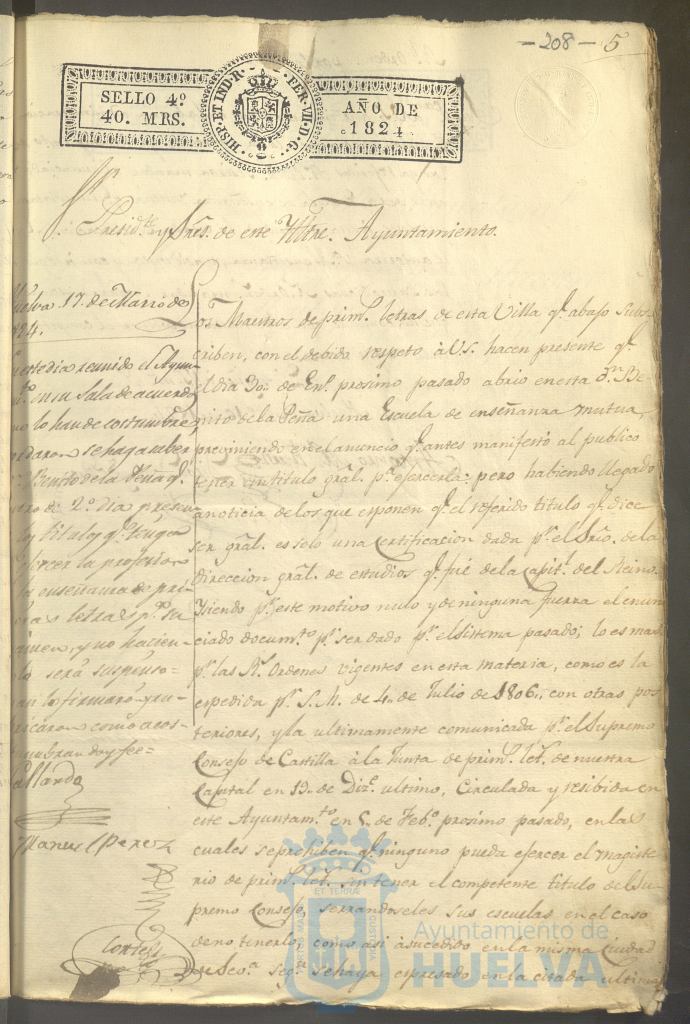 - 208 - 5
SELLO 4º
40. MRS.
HISP. ET IND. R. FER. VII. D. G.
AÑO DE
1824.
Sr.
Presid.te y Sres. de este Yltre. Ayuntamiento.
Los Maestros de prim.s letras de esta Villa q.e abajo subs-
criben, con el debido respeto à V.S. hacen presente q.e
el dia 30. de En.o proximo pasado abrio en esta D.n Be-
nito de la Peña una Escuela de enseñanza mutua,
previniendo en el anuncio q.e antes manifestó al publico
tener un titulo gral. p.a ejercerla: pero habiendo llegado
a noticia de los que exponen q.e el referido titulo q.e dice
ser gral. es solo una Certificacion dada p.r el Srio. de la
Direccion gral. de estudios q.e fué de la Capit.l del Reino.
Y siendo p.r este motivo nulo y de ninguna fuerza el enun-
ciado docum.to p.r ser dado p.r el sistema pasado; lo es mas
p.r las R.s Ordenes vigentes en esta materia, como es la
expedida p.r S. M. de 4. de Julio de 1806., con otras pos-
teriores, y la ultimamente comunicada p.r el Supremo
Consejo de Castilla à la Junta de prim.s let.s de nuestra
Capital en 19. de Dic.e ultimo, Circulada y recibida en
este Ayuntam.to en 5. de Feb.o proximo pasado, en las
cuales se prohiben q.e ninguno pueda ejercer el magiste-
rio de prim.s let.s sin tener el competente titulo del Su-
premo Consejo, serrandoseles sus escuelas en el caso
de no tenerlo, como asi à sucedido en la misma Ciudad
de Sev.a seg.n se haya expresado en la citada ultima
Huelva 17. de Marzo de
1824.
este dia reunido el Ayun-
t.o en su Sala de acuerdos
lo han de costumbre,
acordaron se haga saber
Benito de la Peña q.e
de 2.o dia presen-
titulo q.e tenga
ejercer la profesion
la enseñanza de pri-
letras p.a su
y no hacien-
lo será suspenso=
lo firmaron y ru-
bricaron como acos-
tumbran doy fe=
Gallardo
Manuel Perez
Cortes
Ayuntamiento de
HUELVA